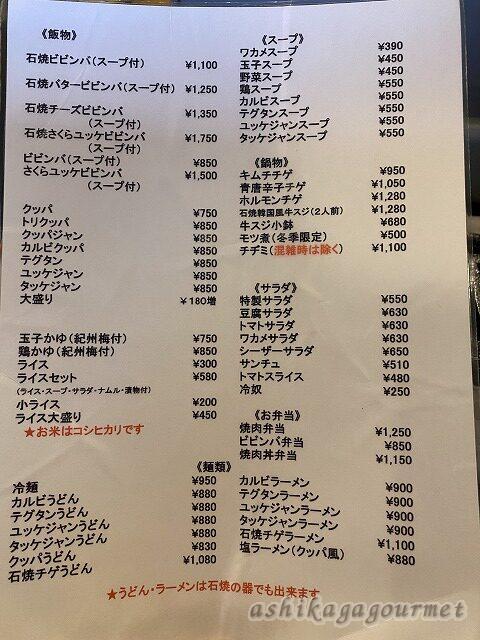 《飯物》
石焼ビビンバ(スープ付) ¥1,100
石焼バタービビンバ(スープ付) ¥1,250
石焼チーズビビンバ ¥1,350
(スープ付)
石焼さくらユッケビビンバ ¥1,750
(スープ付)
ビビンバ(スープ付) ¥850
さくらユッケビビンバ ¥1,500
(スープ付)
クッパ ¥750
トリクッパ ¥850
クッパジャン ¥850
カルビクッパ ¥850
テグタン ¥850
ユッケジャン ¥850
タッケジャン ¥850
大盛り ¥180増
玉子かゆ(紀州梅付) ¥750
鶏かゆ(紀州梅付) ¥850
ライス ¥300
ライスセット ¥580
(ライス・スープ・サラダ・ナムル・漬物付)
小ライス ¥200
ライス大盛り ¥450
★お米はコシヒカリです
《麺類》
冷麺 ¥950
カルビうどん ¥880
テグタンうどん ¥880
ユッケジャンうどん ¥880
タッケジャンうどん ¥880
クッパうどん ¥830
石焼チゲうどん ¥1,080
《スープ》
ワカメスープ ¥390
玉子スープ ¥450
野菜スープ ¥450
鶏スープ ¥550
カルビスープ ¥550
テグタンスープ ¥550
ユッケジャンスープ ¥550
タッケジャンスープ ¥550
《鍋物》
キムチチゲ ¥950
青唐辛子チゲ ¥1,050
ホルモンチゲ ¥1,280
石焼韓国風牛スジ(2人前) ¥1,280
牛スジ小鉢 ¥680
モツ煮(冬季限定) ¥500
チヂミ(混雑時は除く) ¥1,100
《サラダ》
特製サラダ ¥550
豆腐サラダ ¥630
トマトサラダ ¥630
ワカメサラダ ¥630
シーザーサラダ ¥650
サンチュ ¥510
トマトスライス ¥480
冷奴 ¥250
《お弁当》
焼肉弁当 ¥1,250
ビビンバ弁当 ¥850
焼肉丼弁当 ¥1,150
カルビラーメン ¥900
テグタンラーメン ¥900
ユッケジャンラーメン ¥900
タッケジャンラーメン ¥900
石焼チゲラーメン ¥1,100
塩ラーメン(クッパ風) ¥880
★うどん・ラーメンは石焼の器でも出来ます
ashikagagourmet